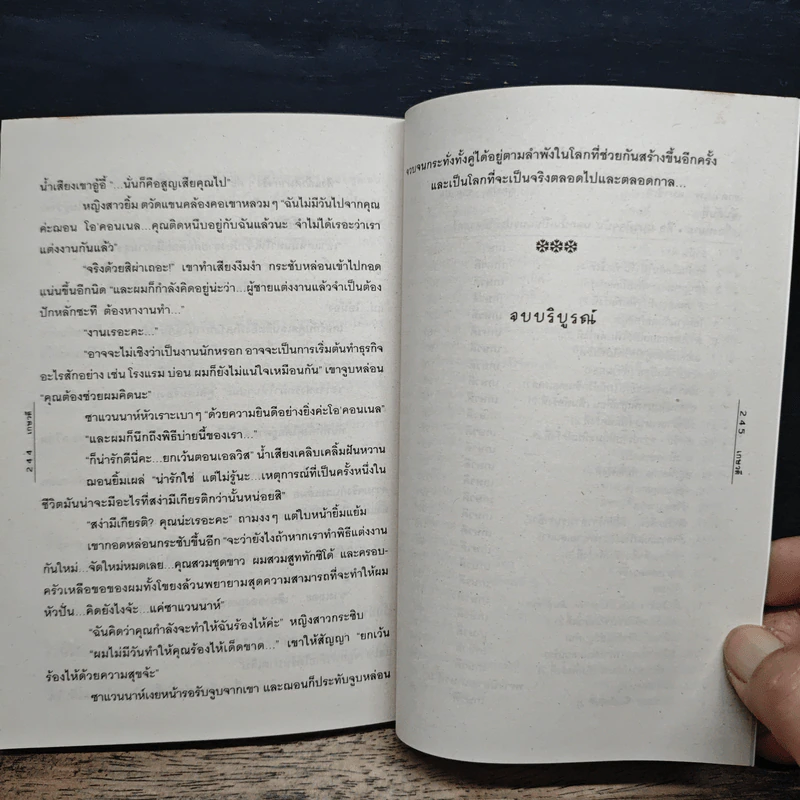 น้ำเสียงเขาอู้อี้ “...นั่นก็คือสูญเสียคุณไป”
หญิงสาวยิ้ม ตวัดแขนคล้องคอเขาหลวมๆ “ฉันไม่มีวันไปจากคุณ
ค่ะฌอน โอ'คอนเนล...คุณติดหนึบอยู่กับฉันแล้วนะ จำไม่ได้เรอะว่าเรา
แต่งงานกันแล้ว”
“จริงด้วยสิผ่าเถอะ!” เขาทำเสียงงึมงำ กระชับหล่อนเข้าไปกอด
แน่นขึ้นอีกนิด “และผมก็กำลังคิดอยู่น่ะว่า...ผู้ชายแต่งงานแล้วจำเป็นต้อง
ปักหลักซะที ต้องหางานทำ...”
“งานเรอะคะ...”
“อาจจะไม่เชิงว่าเป็นงานนักหรอก อาจจะเป็นการเริ่มต้นทำธุรกิจ
อะไรสักอย่าง เช่น โรงแรม บ่อน ผมก็ยังไม่แน่ใจเหมือนกัน” เขาจูบหล่อน
“คุณต้องช่วยผมคิดนะ”
ซาแวนนาห์หัวเราะเบาๆ “ด้วยความยินดีอย่างยิ่งค่ะโอ'คอนเนล”
“และผมก็นึกถึงพิธีบ่ายนี้ของเรา...”
“ก็น่ารักดีนี่คะ...ยกเว้นตอนเอลวิส” น้ำเสียงเคลิบเคลิ้มฝันหวาน
ฌอนยิ้มเผล่ “น่ารักใช่ แต่ไม่รู้นะ...เหตุการณ์ที่เป็นครั้งหนึ่งใน
ชีวิตมันน่าจะมีอะไรที่สง่ามีเกียรติกว่านั้นหน่อยสิ”
“สง่ามีเกียรติ? คุณน่ะเรอะคะ” ถามงงๆ แต่ใบหน้ายิ้มแย้ม
เขากอดหล่อนกระชับขึ้นอีก “จะว่ายังไงถ้าหากเราทำพิธีแต่งงาน
กันใหม่...จัดใหม่หมดเลย คุณสวมชุดขาว ผมสวมสูททักซิโด้ และครอบ-
ครัวเหลือขอของผมทั้งโขยงล้วนพยายามสุดความสามารถที่จะทำให้ผม
หัวปั่น...คิดยังไงจ๊ะ...แค่ซาแวนนาห์”
“ฉันคิดว่าคุณกำลังจะทำให้ฉันร้องไห้ค่ะ” หญิงสาวกระซิบ
“ผมไม่มีวันทำให้คุณร้องไห้เด็ดขาด...” เขาให้สัญญา “ยกเว้น
ร้องไห้ด้วยความสุขจ้ะ”
ซาแวนนาห์เงยหน้ารอรับจูบจากเขา และฌอนก็ประทับจูบหล่อน
244 เกษวดี
จวบจนกระทั่งทั้งคู่ได้อยู่ตามลำพังในโลกที่ช่วยกันสร้างขึ้นอีกครั้ง
และเป็นโลกที่จะเป็นจริงตลอดไปและตลอดกาล...
จบบริบูรณ์
245 เกษวดี